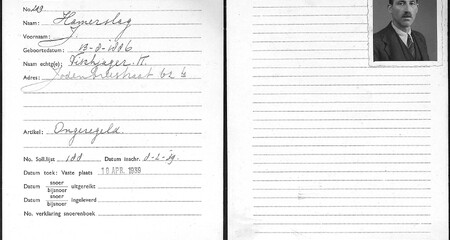 No. 149
Naam: Hamerslag
Voornaam: J.
Geboortedatum: 13-9-1896
Naam echtg(e). Vischjager. R.
Adres: Jodenbreestraat 62 ½
Artikel: Ongeregeld
No. Soll.lijst 188 Datum inschr.
Datum toek: Vaste plaats 10 APR. 1939
Datum snoer uitgereikt
bijsnoer
Datum snoer ingeleverd
bijsnoer
No. verklaring snoerenboek